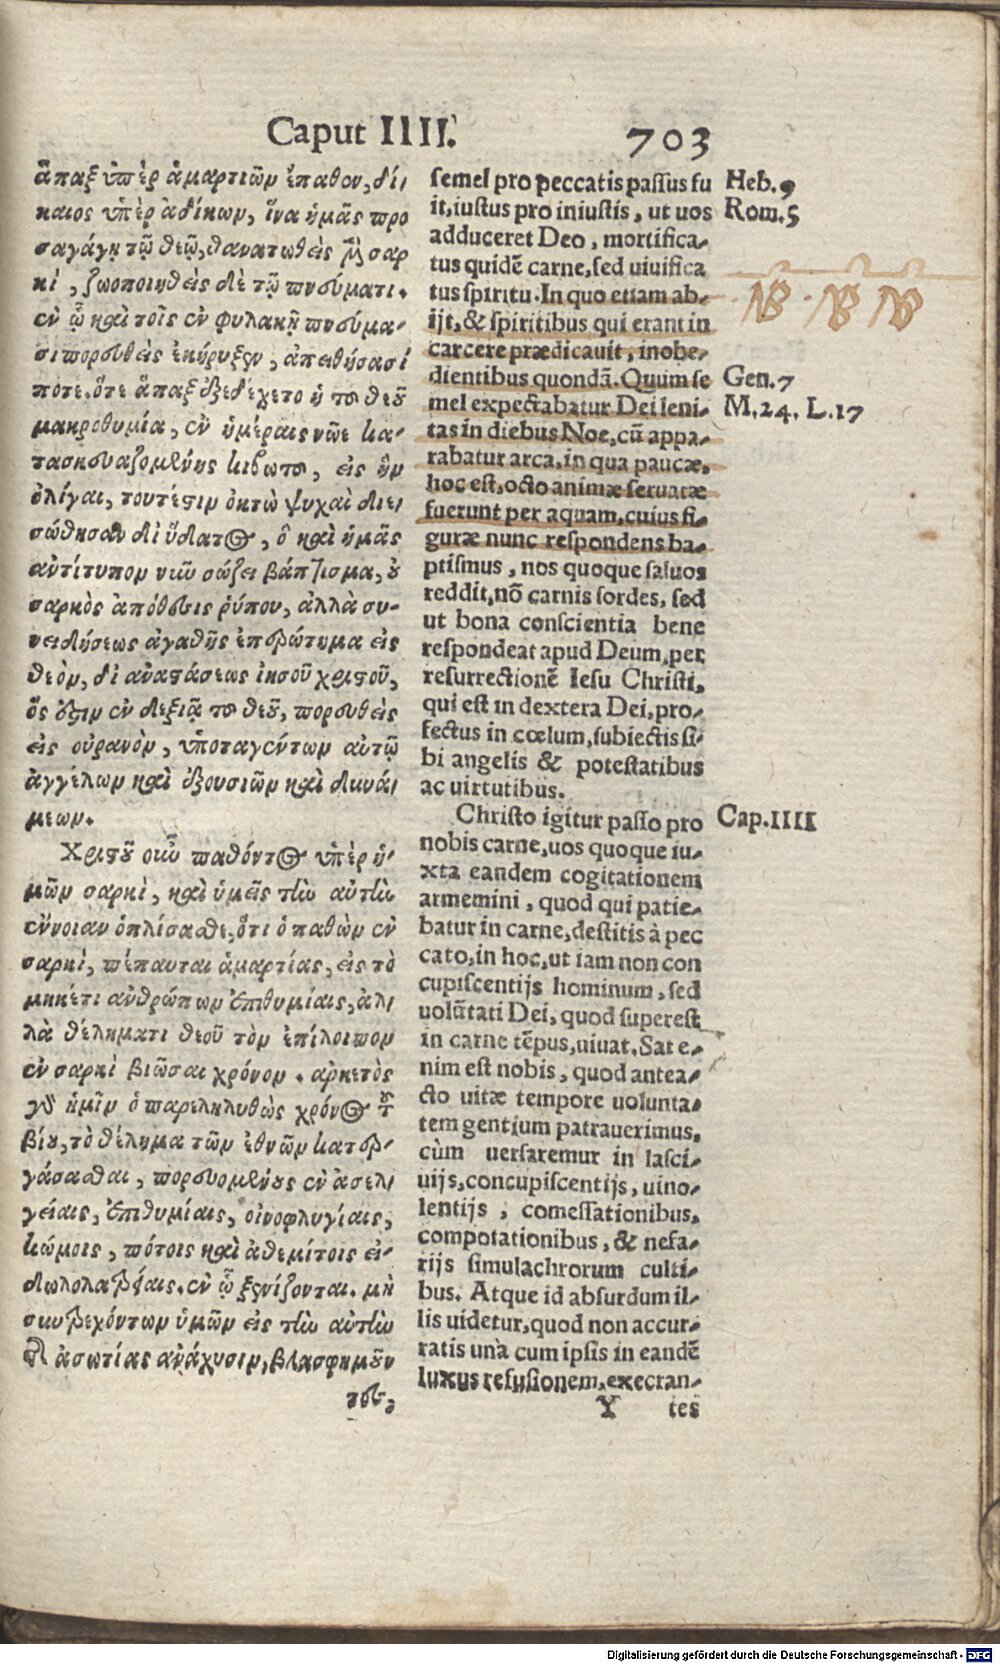 Caput IIII.
703
ἅπαξ ὑπὲρ ἁμαρτιῶν ἔπαθεν, δί-
καιος ὑπὲρ ἀδίκων, ἵνα ἡμᾶς προ
σαγάγῃ τῷ θεῷ, θανατωθεὶς μὲν σαρ
κὶ, ζωοποιηθεὶς δὲ τῷ πνεύματι.
ἐν ᾧ καὶ τοῖς ἐν φυλακῇ πνεύμα-
σι πορευθεὶς ἐκήρυξεν, ἀπειθήσασί
ποτε, ὅτε ἅπαξ ἐξεδέχετο ἡ τοῦ θεοῦ
μακροθυμία, ἐν ἡμέραις νῶε κα-
τασκευαζομένης κιβωτοῦ, εἰς ἣν
ὀλίγαι, τουτέστιν ὀκτὼ ψυχαὶ διε-
σώθησαν δι' ὕδατος, ὃ καὶ ἡμᾶς
ἀντίτυπον νῦν σώζει βάπτισμα, οὐ
σαρκὸς ἀπόθεσις ῥύπου, ἀλλὰ συ-
νειδήσεως ἀγαθῆς ἐπερώτημα εἰς
θεὸν, δι' ἀναστάσεως ἰησοῦ χριστοῦ,
ὅς ἐστιν ἐν δεξιᾷ τοῦ θεοῦ, πορευθεὶς
εἰς οὐρανὸν, ὑποταγέντων αὐτῷ
ἀγγέλων καὶ ἐξουσιῶν καὶ δυνά-
μεων.
Χριστοῦ οὖν παθόντος ὑπὲρ ἡ-
μῶν σαρκὶ, καὶ ὑμεῖς τὴν αὐτὴν
ἔννοιαν ὁπλίσασθε, ὅτι ὁ παθὼν ἐν
σαρκὶ, πέπαυται ἁμαρτίας, εἰς τὸ
μηκέτι ἀνθρώπων ἐπιθυμίαις, ἀλ-
λὰ θελήματι θεοῦ τὸν ἐπίλοιπον
ἐν σαρκὶ βιῶσαι χρόνον. ἀρκετὸς
γὰρ ἡμῖν ὁ παρεληλυθὼς χρόνος τοῦ
βίου, τὸ θέλημα τῶν ἐθνῶν κατερ-
γάσασθαι, πορευομένους ἐν ἀσελ-
γείαις, ἐπιθυμίαις, οἰνοφλυγίαις,
κώμοις, πότοις καὶ ἀθεμίτοις εἰ-
δωλολατρείαις. ἐν ᾧ ξενίζονται. μὴ
συντρεχόντων ὑμῶν εἰς τὴν αὐτὴν
τῆς ἀσωτίας ἀνάχυσιν, βλασφημοῦν
τες,
semel pro peccatis passus fu
it, iustus pro iniustis, ut uos
adduceret Deo, mortifica-
tus quidē carne, sed uiuifica
tus spiritu. In quo etiam ab-
ijt, & spiritibus qui erant in
carcere prædicauit, inobe-
dientibus quondā. Quum se
mel expectabatur Dei leni-
tas in diebus Noe, cū appa-
rabatur arca, in qua paucæ,
hoc est, octo animæ seruatæ
fuerunt per aquam, cuius fi-
guræ nunc respondens ba-
ptismus, nos quoque saluos
reddit, nō carnis sordes, sed
ut bona conscientia bene
respondeat apud Deum, per
resurrectionē Iesu Christi,
qui est in dextera Dei, pro-
fectus in cœlum, subiectis si-
bi angelis & potestatibus
ac uirtutibus.
Christo igitur passo pro
nobis carne, uos quoque iu-
xta eandem cogitationem
armemini, quod qui patie-
batur in carne, destitis à pec
cato, in hoc, ut iam non con
cupiscentijs hominum, sed
uolūtati Dei, quod superest
in carne tēpus, uiuat. Sat e-
nim est nobis, quod antea-
cto uitæ tempore uolunta-
tem gentium patrauerimus,
cùm uersaremur in lasci-
uijs, concupiscentijs, uino-
lentijs, comessationibus,
compotationibus, & nefa-
rijs simulachrorum culti-
bus. Atque id absurdum il-
lis uidetur, quod non accur-
ratis unà cum ipsis in eandē
luxus refusionem, execran-
Y tes
Heb. 9
Rom. 5
NB. NB NB
Gen. 7
M. 24. L. 17
Cap. IIII
Digitalisierung gefördert durch die Deutsche Forschungsgemeinschaft - DFG